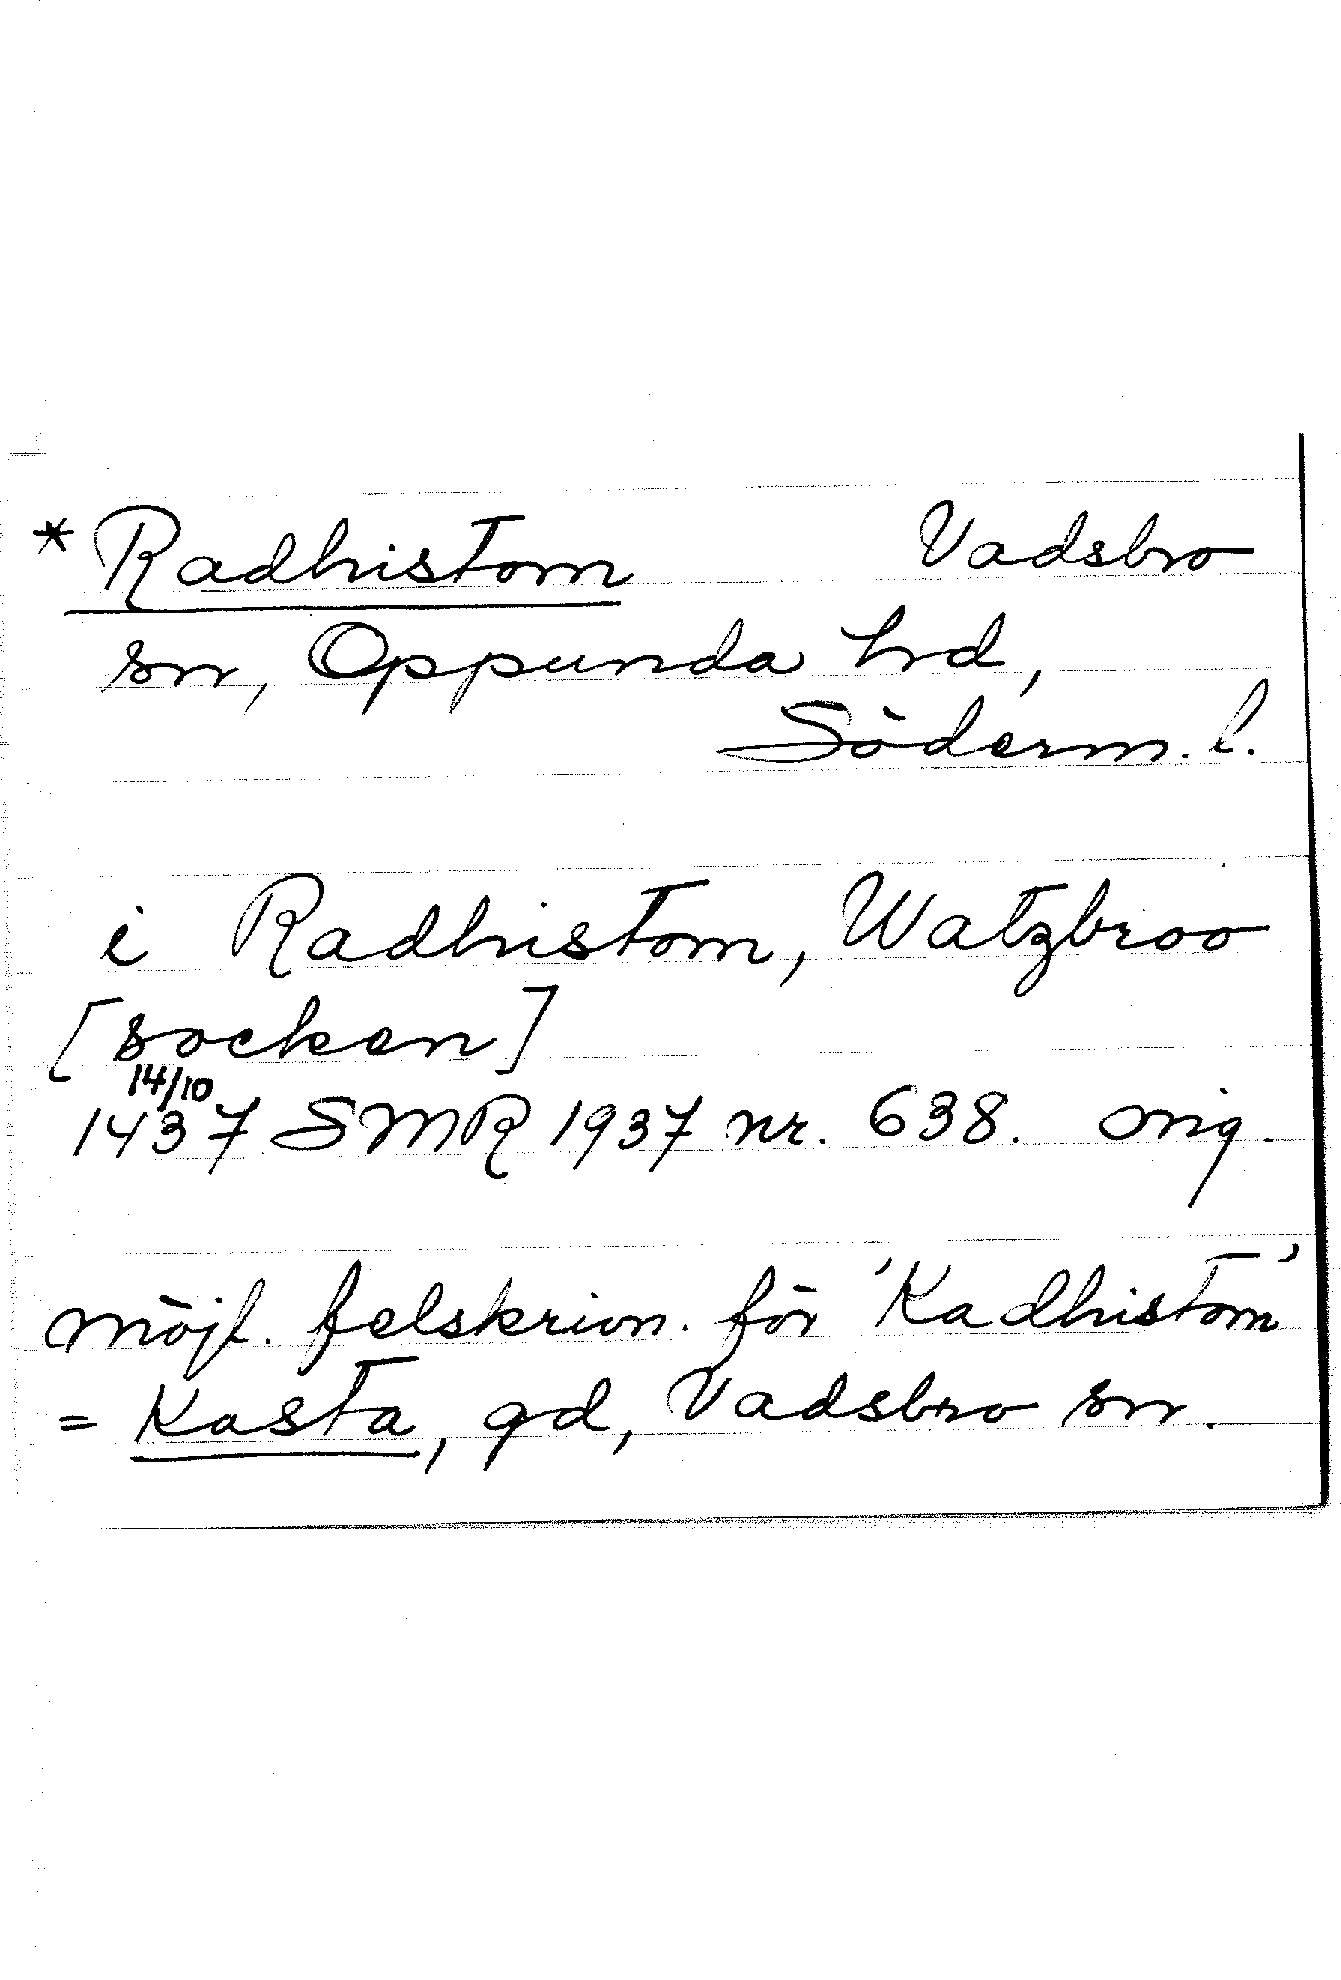 * Radhistom Vadsbro
sn, Oppunda hd,
Söderm. l.
i Radhistom, Watzbroo
[socken]
14/10
1437 SMR 1937 nr. 638. orig.
möjl. felskrivn. för 'Kadhistom'
= Kasta, gd, Vadsbro sn.